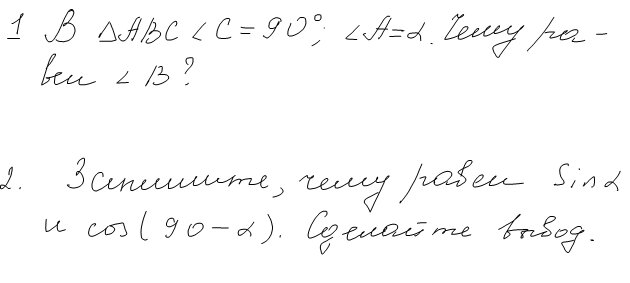 1 В △ABC ∠C = 90°; ∠A=α. Чему ра-
вен ∠B?
2. Запишите, чему равен Sinα
и cos(90-α). Сделайте вывод.